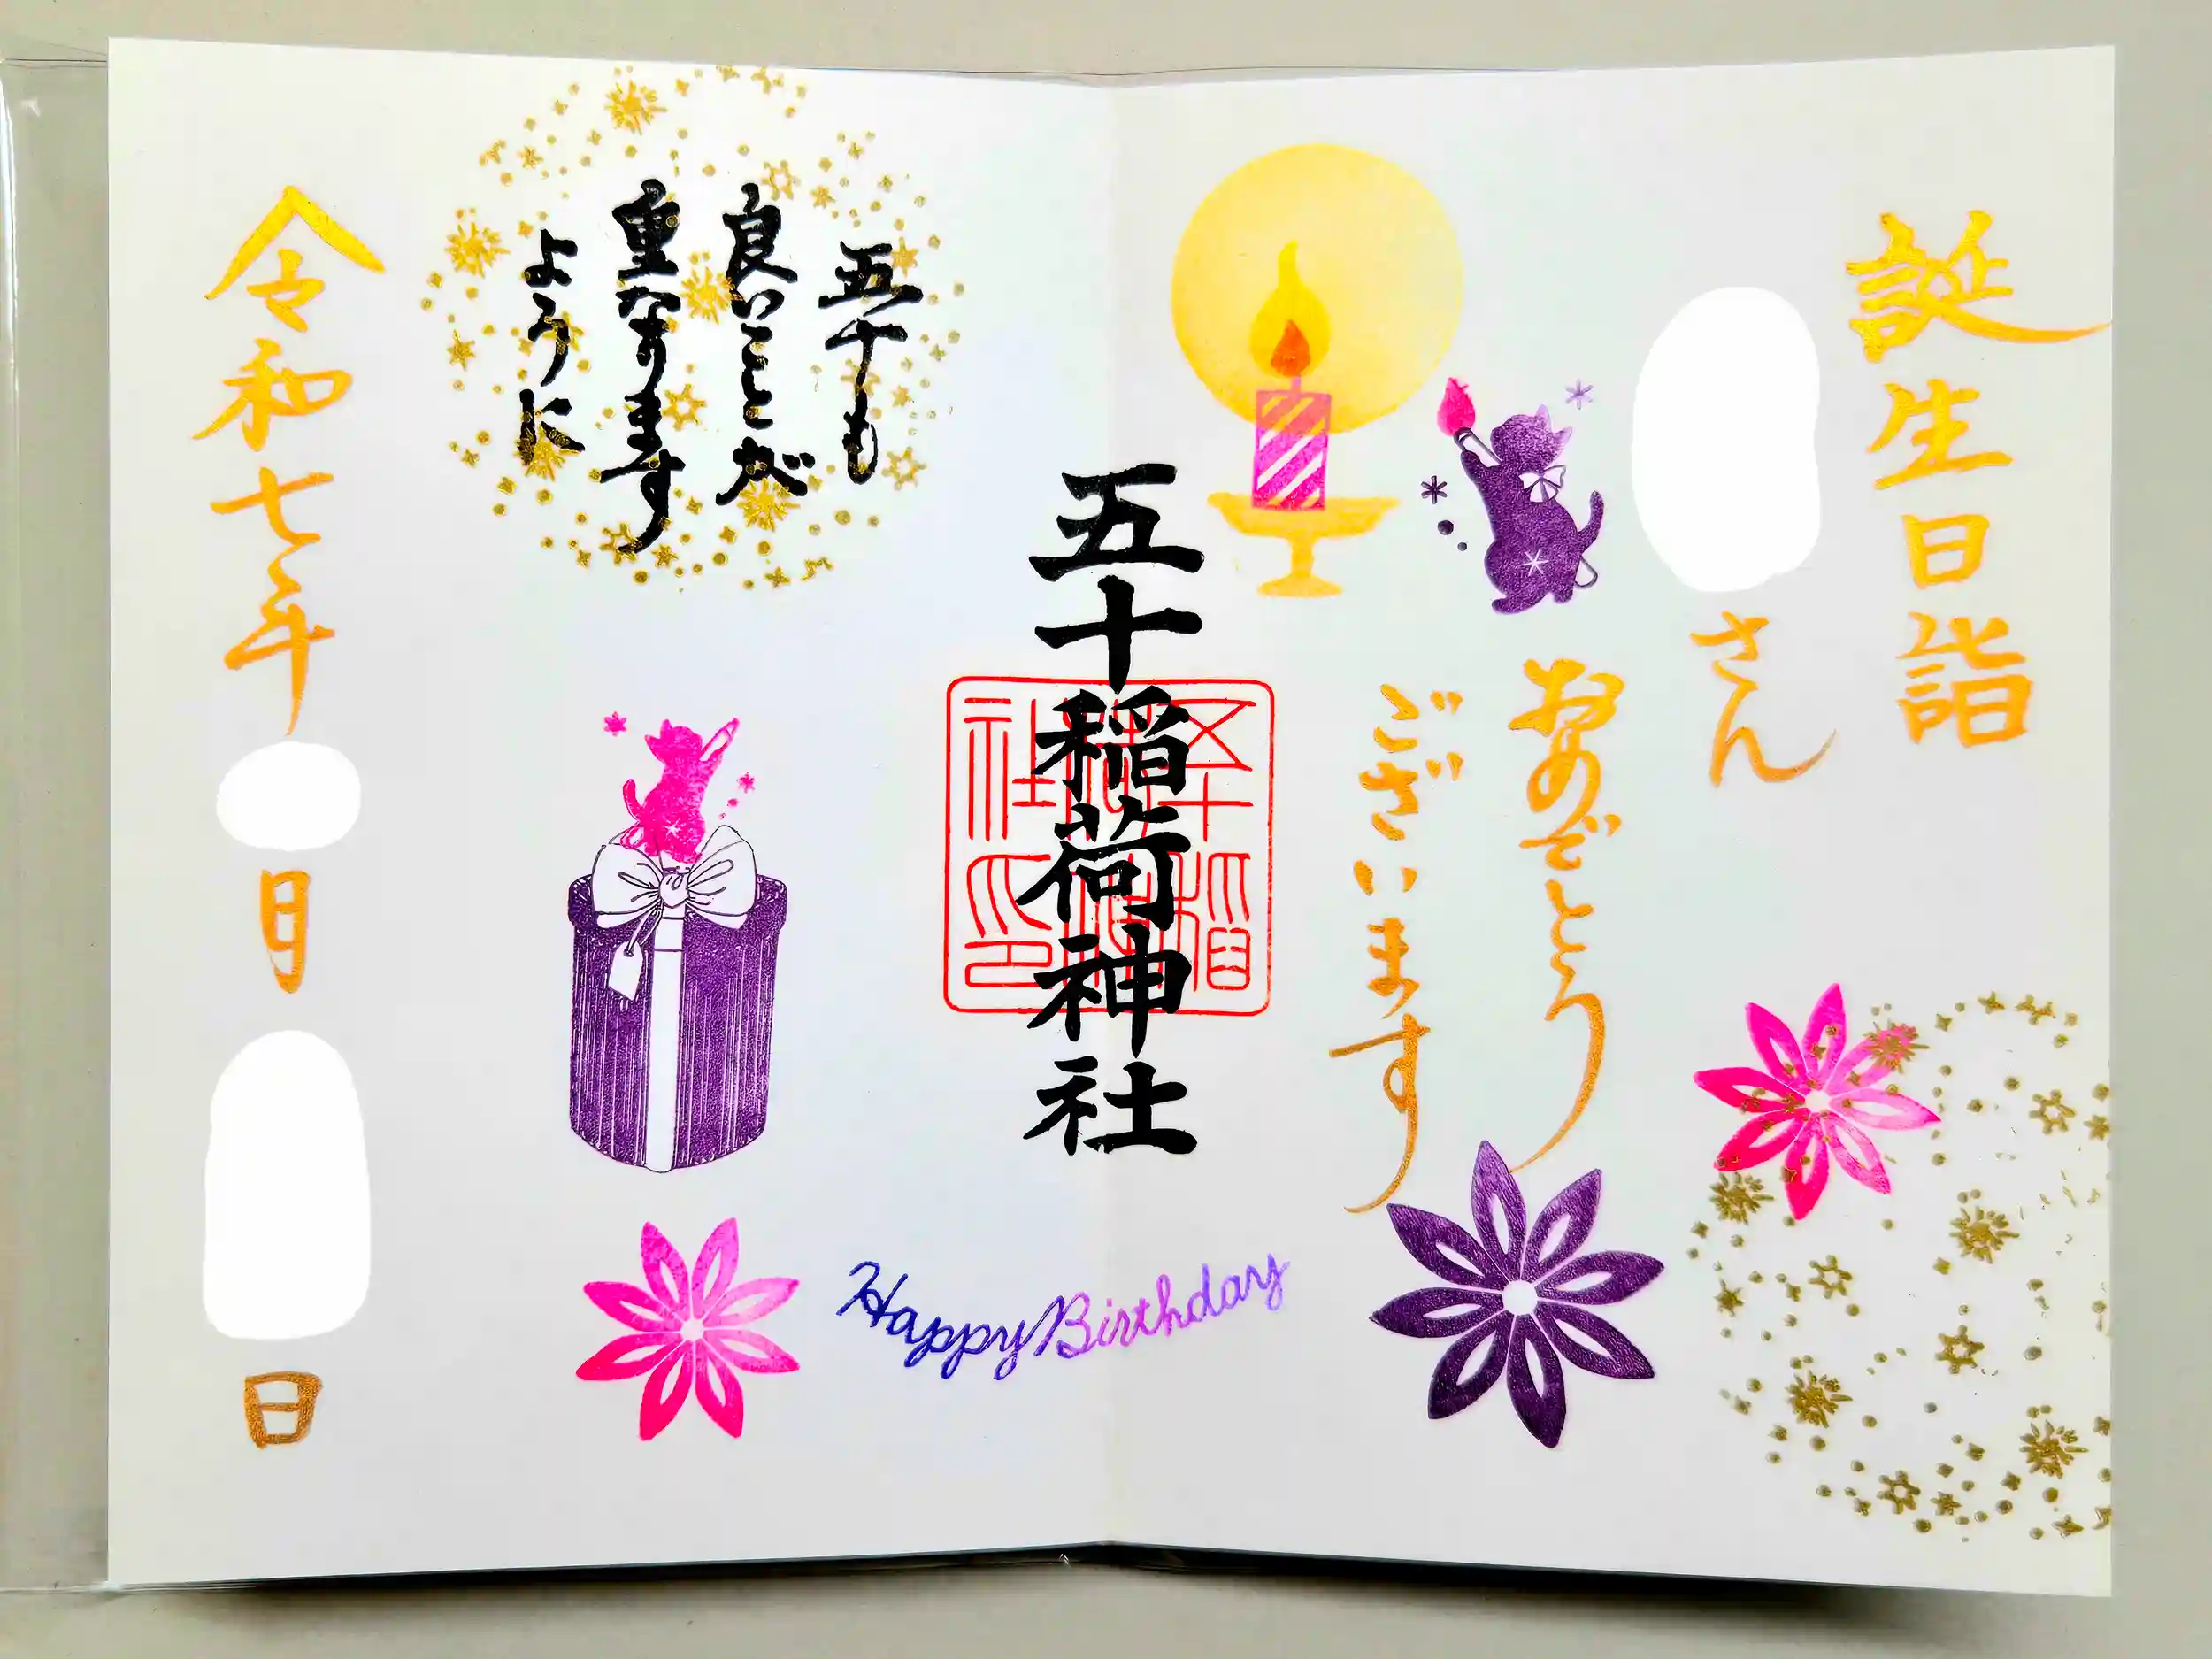 誕生日詣
さん
おめでとう
ございます
五十稲荷神社
五十も
良いことが
重なります
ように
令和七年
月
日
Happy Birthday